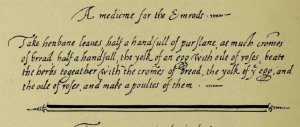 A medicine for the Emrods
Take henbane leaves half a handfull of purslane, as much cromes
of bread half a handfull, the yolk of an egg with oile of roses, beate
the herbs togeather with the cromes of Bread, the yolk of yͤ egg, and
the oile of roses, and make a poultes of them